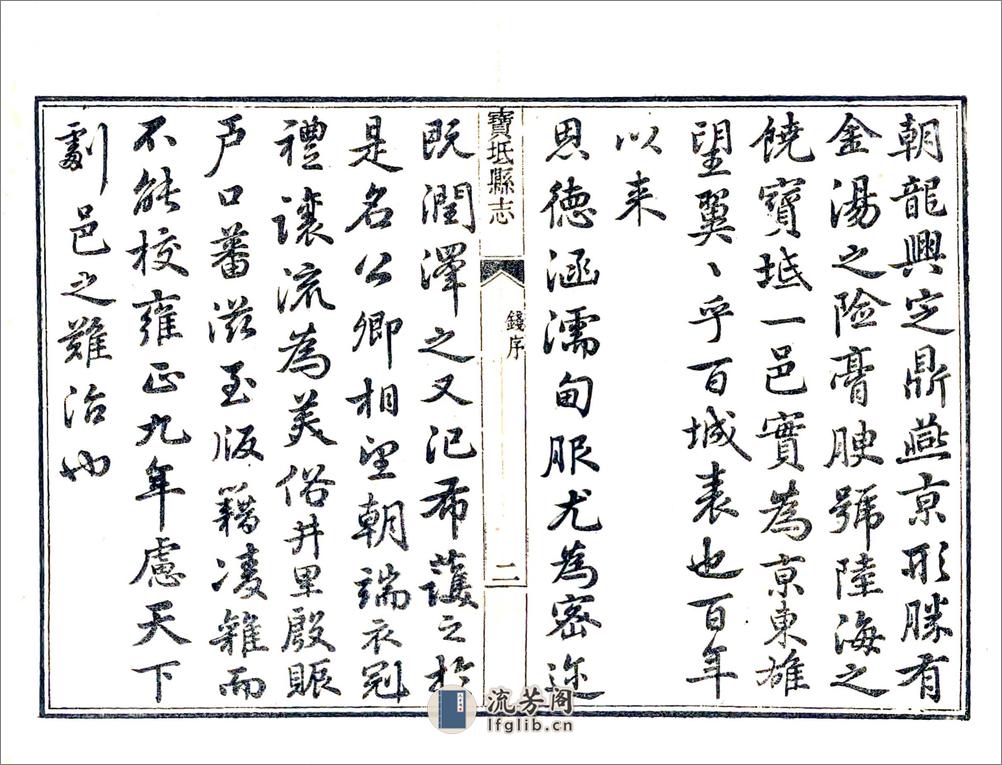 朝龍興定鼎燕京形勝有
金湯之險膏腴號陸海之
饒寶坻一邑實為京東雄
望翼〻乎百城表也百年
以来
恩德涵濡甸服尤為密迩
寶坻縣志
錢序
二
既潤澤之又汜布護之於
是名公卿相望朝端衣冠
禮讓流為美俗井里殷賑
户口蕃滋至版籍凌雜而
不能校雍正九年慮天下
劇邑之難治也
流芳阁
lfglib.cn